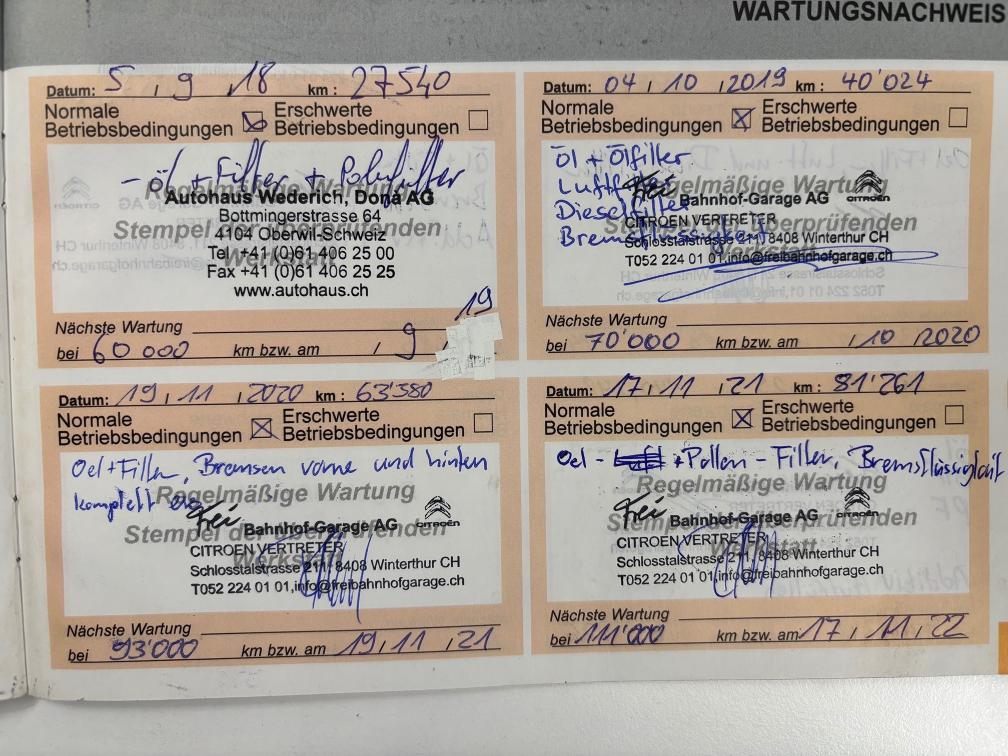 WARTUNGSNACHWEIS
Datum: 5 , 9 , 18 km : 27540
Normale Betriebsbedingungen ☒ Erschwerte Betriebsbedingungen ☐
- öl + Filter + Pollenfilter
Regelmäßige Wartung
Autohaus Wederich, Donà AG
Bottmingerstrasse 64
Stempel der überprüfenden
4104 Oberwil-Schweiz
Werkstatt
Tel +41 (0)61 406 25 00
Fax +41 (0)61 406 25 25
www.autohaus.ch
Nächste Wartung
bei 60 000 km bzw. am / 9 / 19
Datum: 04 , 10 , 2019 km : 40'024
Normale Betriebsbedingungen ☒ Erschwerte Betriebsbedingungen ☐
Öl + Ölfilter
Luftfilter
Regelmäßige Wartung
frei Bahnhof-Garage AG CITROËN
Dieselfilter
CITROEN VERTRETER
Stempel der überprüfenden
Bremsflüssigkeit
Schlosstalstrasse 211, 8408 Winterthur CH
Werkstatt
T052 224 01 01,info@freibahnhofgarage.ch
Nächste Wartung
bei 70'000 km bzw. am , 10 , 2020
Datum: 19 , 11 , 2020 km : 63'380
Normale Betriebsbedingungen ☒ Erschwerte Betriebsbedingungen ☐
Oel + Filter, Bremsen vorne und hinten
komplett
Regelmäßige Wartung
frei Bahnhof-Garage AG CITROËN
Stempel der überprüfenden
CITROEN VERTRETER
Werkstatt
Schlosstalstrasse 211, 8408 Winterthur CH
T052 224 01 01,info@freibahnhofgarage.ch
Nächste Wartung
bei 93'000 km bzw. am 19 , 11 , 21
Datum: 17 , 11 , 21 km : 81'261
Normale Betriebsbedingungen ☒ Erschwerte Betriebsbedingungen ☐
Oel - Luft + Pollen - Filter, Bremsflüssigkeit
Regelmäßige Wartung
frei Bahnhof-Garage AG CITROËN
Stempel der überprüfenden
CITROEN VERTRETER
Werkstatt
Schlosstalstrasse 211, 8408 Winterthur CH
T052 224 01 01,info@freibahnhofgarage.ch
Nächste Wartung
bei 111'000 km bzw. am 17 , 11 , 22